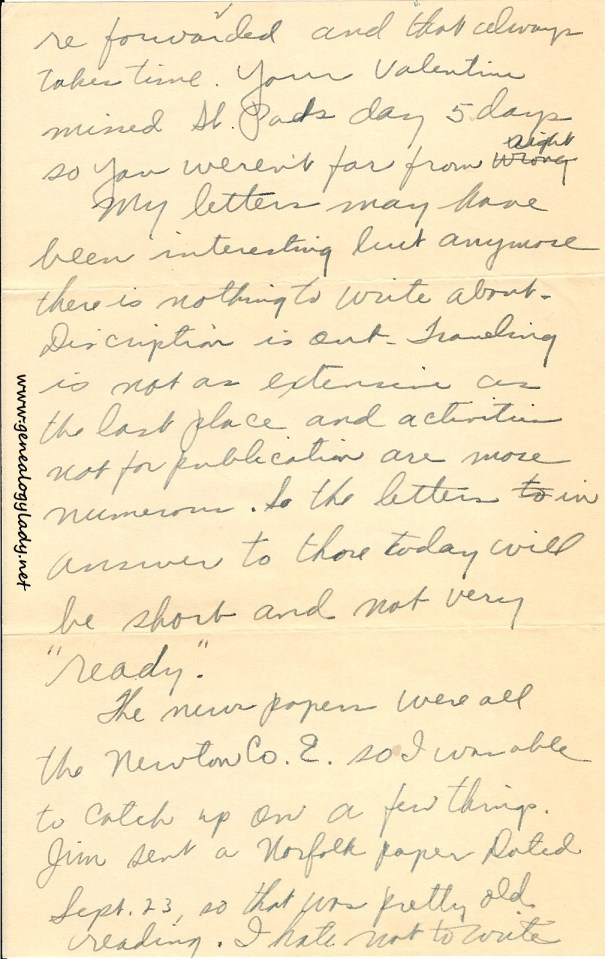 re forwarded and that always
takes time. Your Valentine
missed St. Pats day 5 days
right
so you weren't far from wrong
My letters may have
been interesting but anymore
there is nothing to write about.
Discription is out. Traveling
is not as extensive as
the last place and activities
not for publication are more
numerous. So the letters to in
answer to those today will
be short and not very
"ready".
The news papers were all
the Newton Co. E. so I was able
to catch up on a few things.
Jim sent a Norfolk paper Dated
Sept. 23, so that was pretty old
reading. I hate not to write
www.genealogylady.net